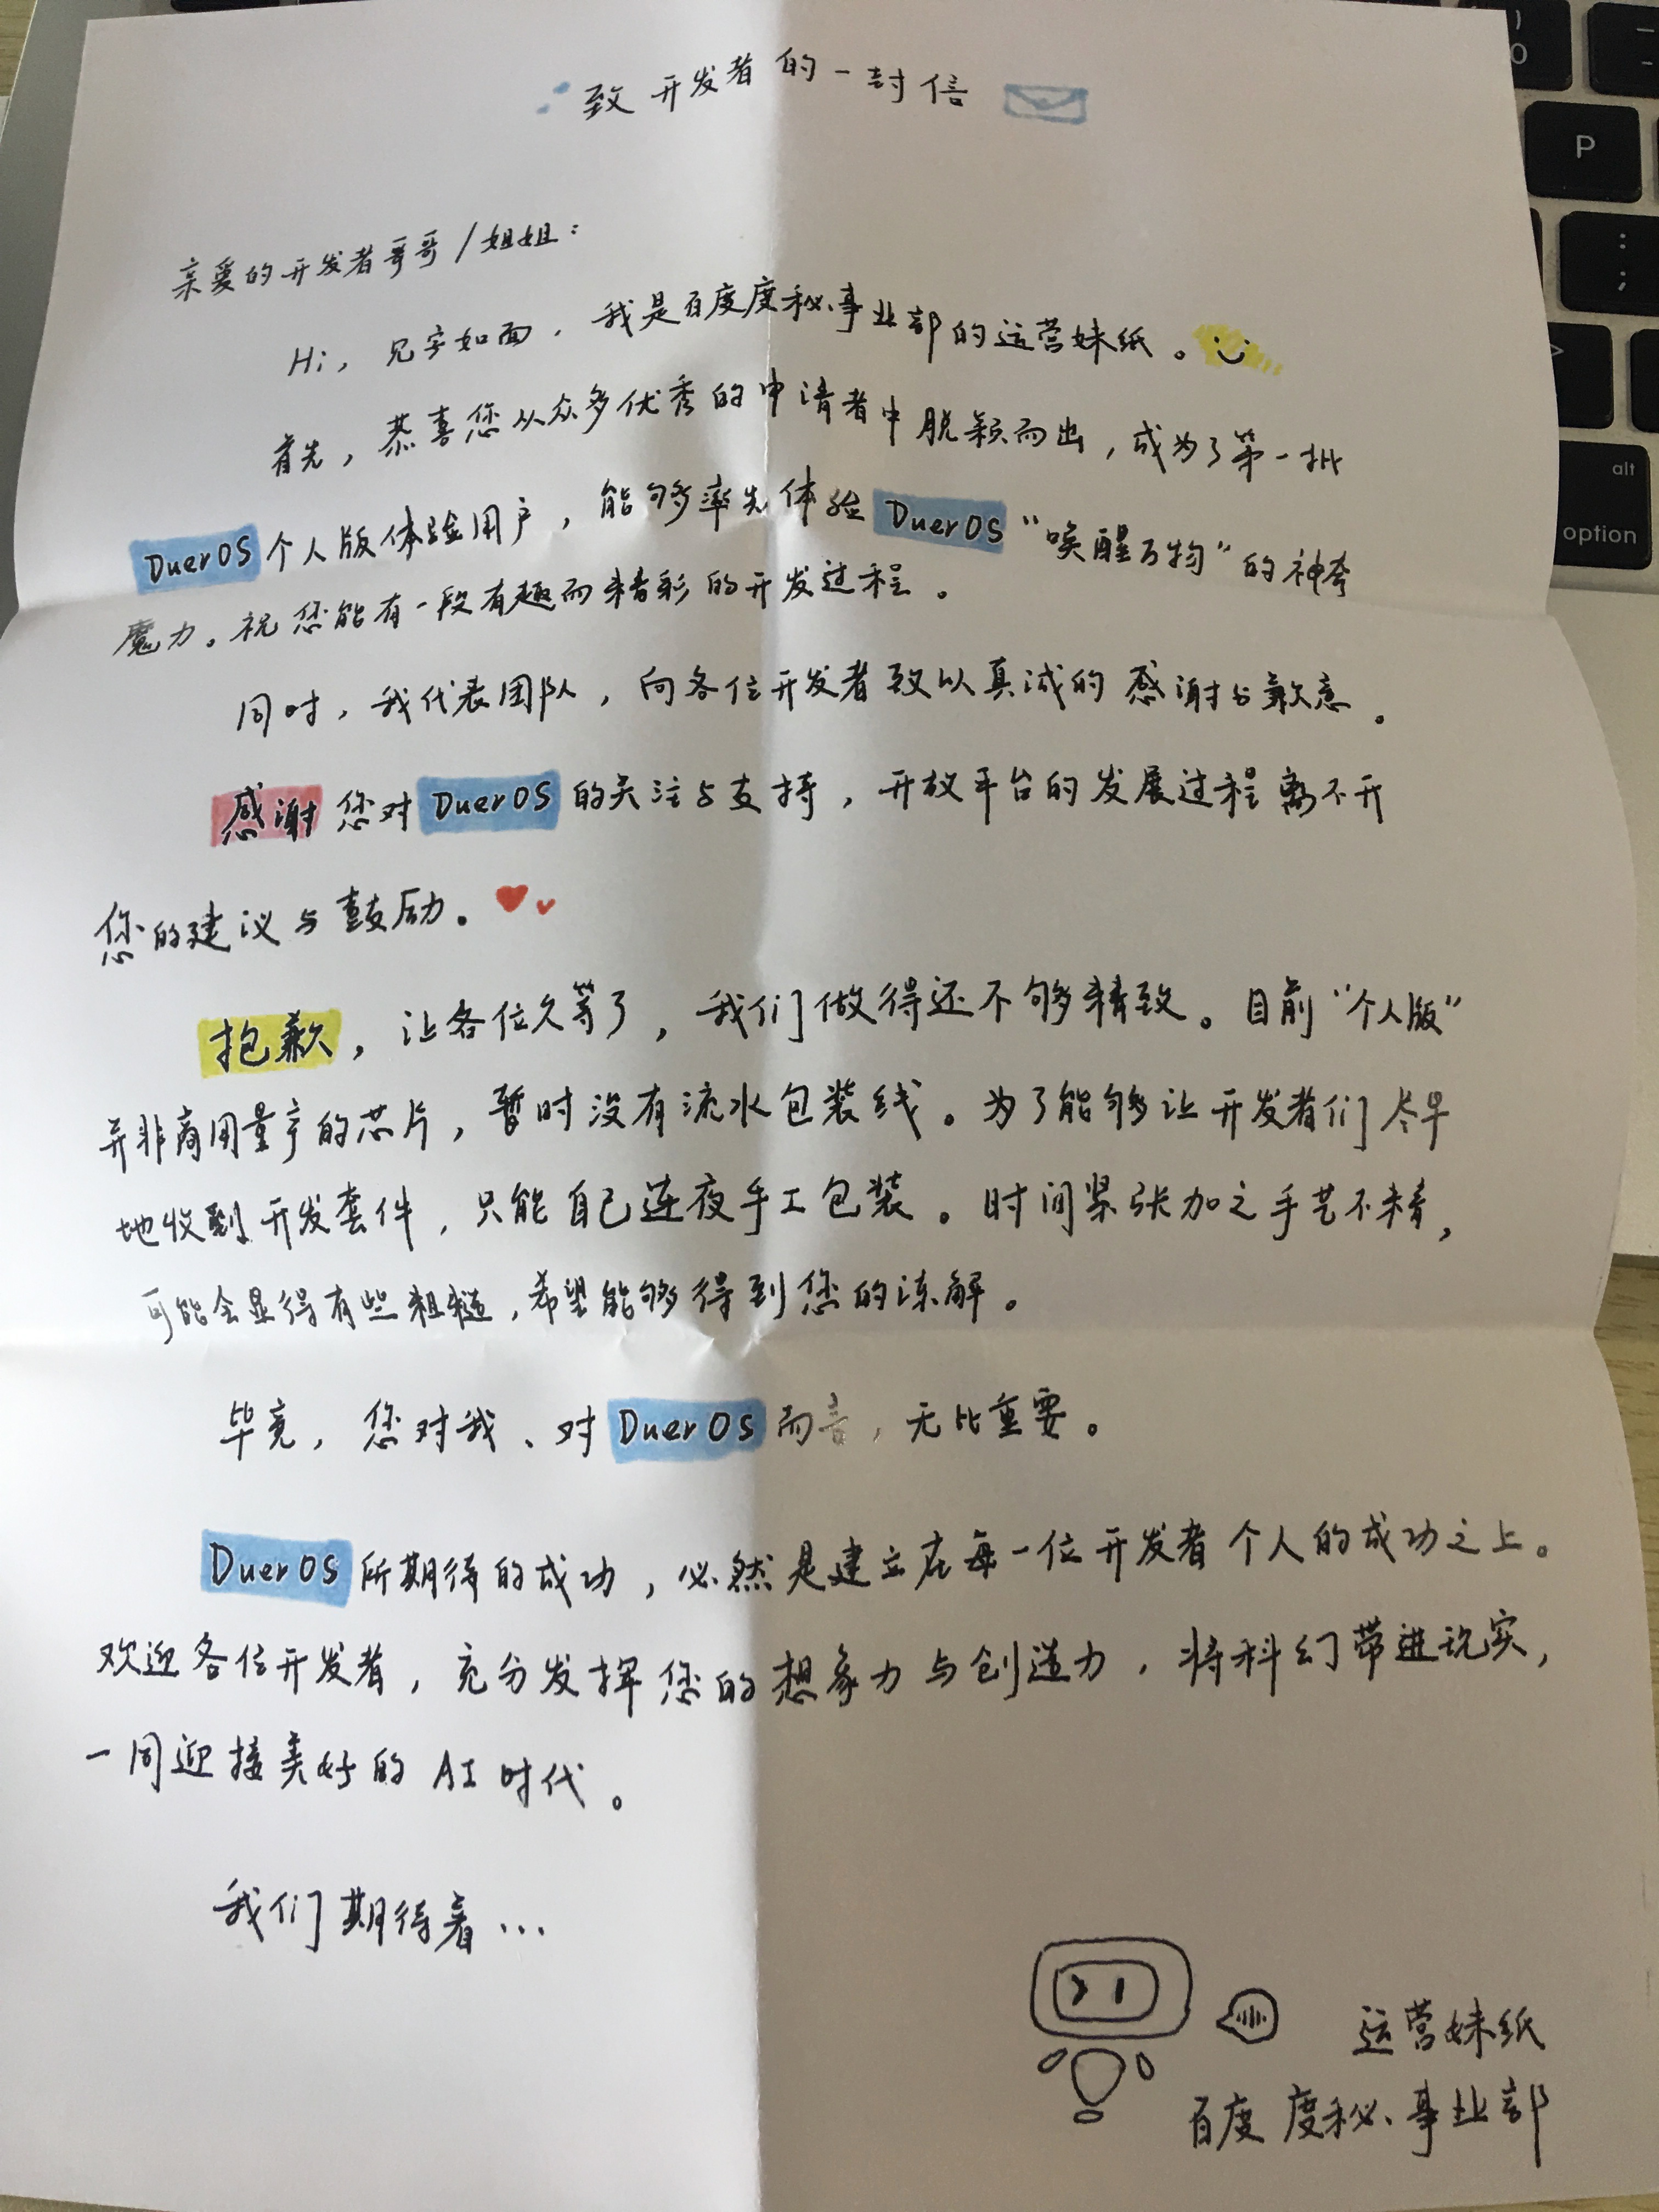 致开发者的一封信
亲爱的开发者哥哥/姐姐：
Hi，见字如面，我是百度度秘事业部的运营妹纸。
首先，恭喜您从众多优秀的申请者中脱颖而出，成为了第一批
DuerOS个人版体验用户，能够率先体验DuerOS“唤醒万物”的神奇
魔力。祝您能有一段有趣而精彩的开发过程。
同时，我代表团队，向各位开发者致以真诚的感谢与歉意。
感谢您对DuerOS的关注与支持，开放平台的发展过程离不开
您的建议与鼓励。
抱歉，让各位久等了，我们做得还不够精致。目前“个人版”
并非商用量产的芯片，暂时没有流水包装线。为了能够让开发者们尽早
地收到开发套件，只能自己连夜手工包装。时间紧张加之手艺不精，
可能会显得有些粗糙，希望能够得到您的谅解。
毕竟，您对我、对DuerOS而言，无比重要。
DuerOS所期待的成功，必然是建立在每一位开发者个人的成功之上。
欢迎各位开发者，充分发挥您的想象力与创造力，将科幻带进现实，
一同迎接美好的AI时代。
我们期待着...
运营妹纸
百度度秘事业部
)
0
-
P
:
;
>
alt
option